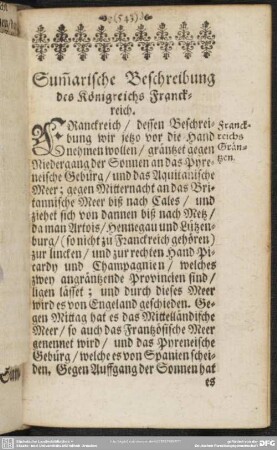 (543)
Sum̃arische Beschreibung
des Königreichs Franck-
reich.
FRanckreich / dessen Beschrei-
bung wir jetzo vor die Hand
nehmen wollen / gräntzet gegen
Niedergang der Sonnen an das Pyre-
neische Gebürg / und das Aquitanische
Meer; gegen Mitternacht an das Bri-
tannische Meer biß nach Cales / und
ziehet sich von dannen biß nach Metz /
da man Artois / Hennegau und Lützen-
burg / (so nicht zu Franckreich gehören)
zur lincken / und zur rechten Hand Pi-
cardy und Champagnien / welches
zwey angräntzende Provincien sind /
ligen lässet; und durch dieses Meer
wird es von Engeland geschieden. Ge-
gen Mittag hat es das Mittelländische
Meer / so auch das Frantzösische Meer
genennet wird / und das Pyreneische
Gebürg / welches es von Spanien schei-
den, Gegen Auffgang der Sonnen hat
es
Franck-
reichs
Grän-
tzen.